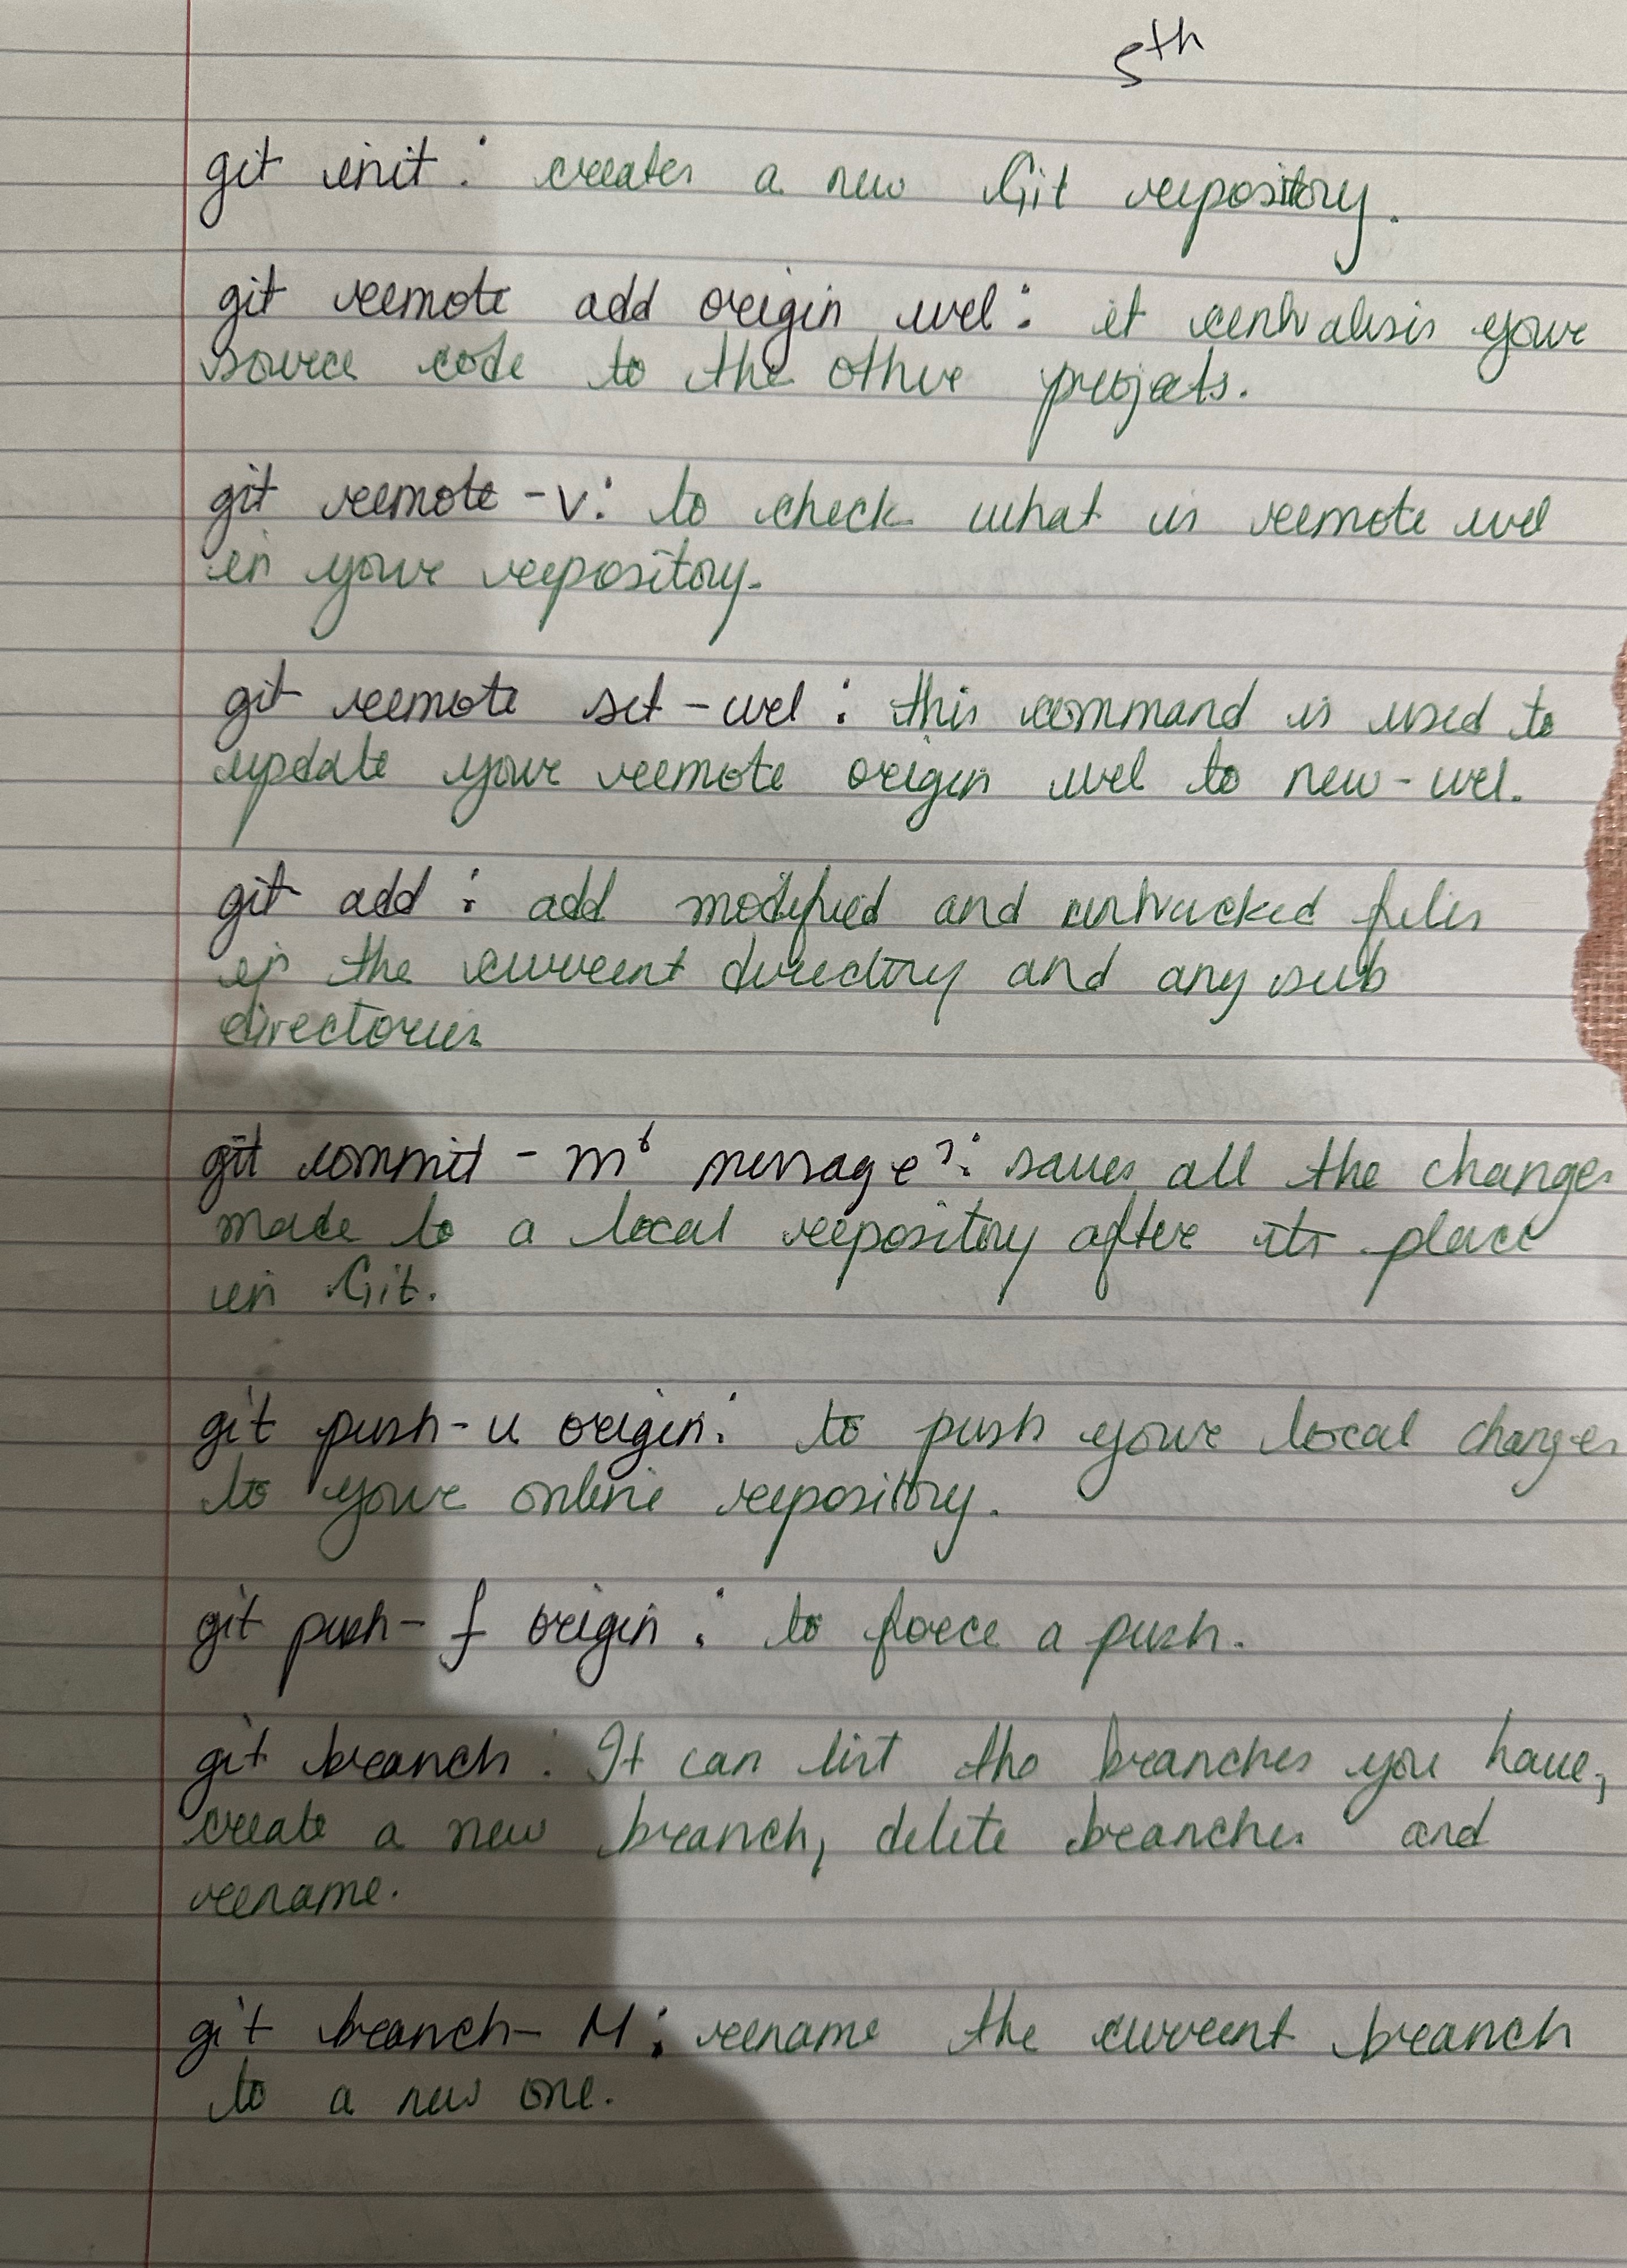 5th
git init : creates a new Git repository.
git remote add origin url : it centralisis your
source code to the other projects.
git remote -v : to check what is remote url
in your repository.
git remote set-url : this command is used to
update your remote origin url to new-url.
git add : add modified and untracked files
in the current directory and any sub
directories
git commit -m ' message ' : saves all the changes
made to a local repository after its place
in Git.
git push -u origin : to push your local changes
to your online repository.
git push -f origin : to force a push.
git branch : It can list the branches you have,
create a new branch, delete branches and
rename.
git branch -M : rename the current branch
to a new one.